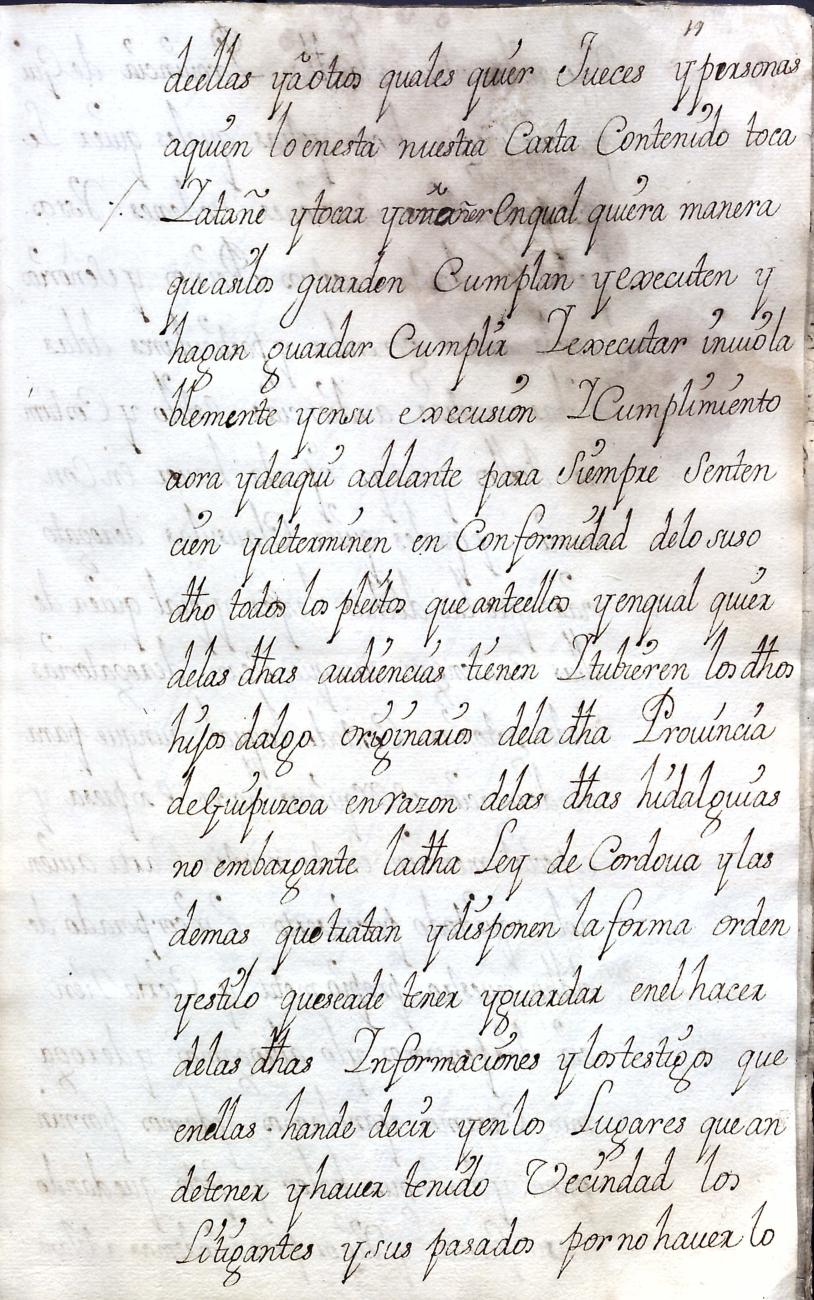 19
deellas yâ otros quales quier Jueces y personas
aquien lo enesta nuestra Carta Contenido toca
/. Iatañe y tocar y atañer En qual quiera manera
queasilos guarden Cumplan y executen y
hagan guardar Cumplir Iexecutar inviola
blemente y ensu execusion ICumplimiento
aora ydeaqui adelante para Siempre Senten
cien ydeterminen en Conformidad delo suso
dho todos los pleitos que anteellos yenqual quier
delas dhas audiencias tienen Itubieren los dhos
hijos dalgo originarios dela dha Provincia
deGuipuzcoa enrazon delas dhas hidalguias
no embargante ladha Ley de Cordova y las
demas que tratan ydisponen la forma orden
yestilo queseade tener yguardar enel hacer
delas dhas Informaciones y lostestigos que
enellas hande decir yenlos Lugares quean
detener yhaver tenido Vecindad los
Litigantes y sus pasados porno haver lo